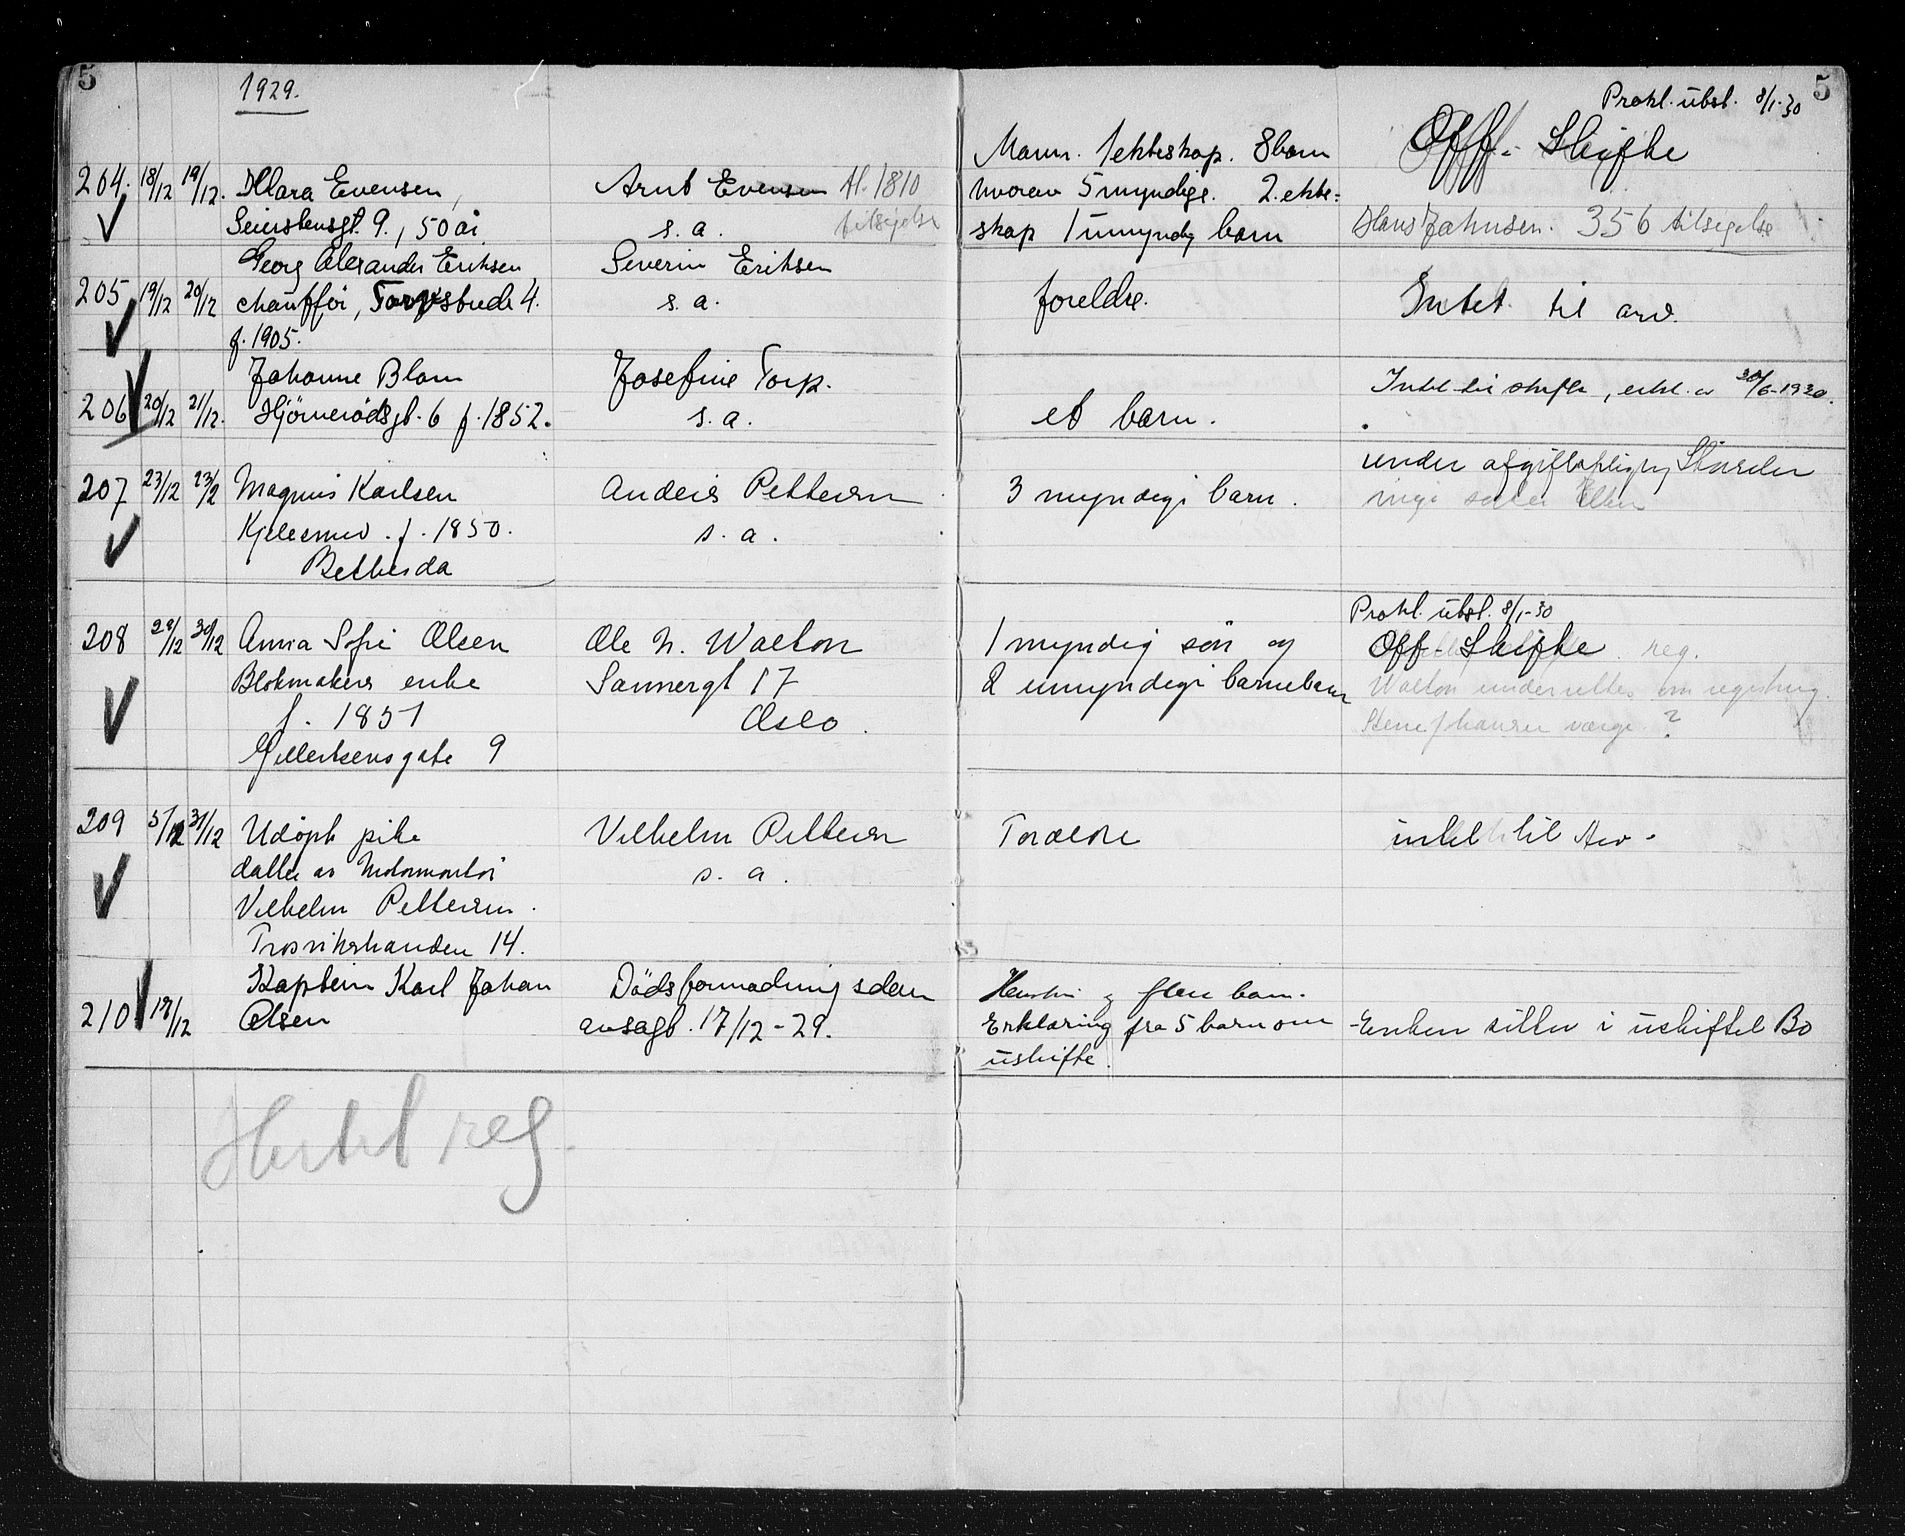 5
1929.
5
Prokl. utst. 8/1-30
204. 18/12 19/12. Klara Evensen,
Seierstensgt. 9., 50 år
Arnt Evensen tl. 1810
s. a. tilsigelse
Mann. 1 ekteskap. 8 barn
hvorav 5 myndige. 2. ekte-
skap 1 umyndig barn
Off. Skifte
Hans Johnsen. 356 tilsigelse
205 19/12 20/12 Georg Alexander Eriksen
chauffør, Torvsbude 4.
f. 1905.
Severin Eriksen
s. a.
foreldre.
Intet til arv.
206 20/12 21/12. Johanne Blom
Hjørnerødsgt. 6 f. 1852.
Josefine Torp.
s. a.
et barn.
Intet til skifte, erkl. av 30/6-1930.
207 23/12 23/12 Magnus Karlsen
Kjelesmed. f. 1850.
Bethesda
Anders Pettersen
s. a.
3 myndige barn.
under
208 28/12 30/12 Anna Sofie Olsen
Blokmakers enke
f. 1851
Gillertsensgate 9
Ole N. Walton
Sannergt 17
Oslo.
1 myndig søn og
2 umyndige barnebarn
Prokl. utst. 8/1-30
Off. Skifte. reg.
Walton underrettes om registrering.
værge ?
209 31/12 31/12 Udøpt pike
datter av Motormontør
Vilhelm Pettersen.
Trosvikstranden 14.
Vilhelm Pettersen
s. a.
Foreldre
intet til Arv.
210 17/12 Kaptein Karl Johan
Olsen
Dödsformodning sdom
avsagt. 17/12-29.
Hustru og flere barn.
Erklæring fra 5 barn om
uskifte.
Enken sitter i uskiftet Bo
Hertil reg.